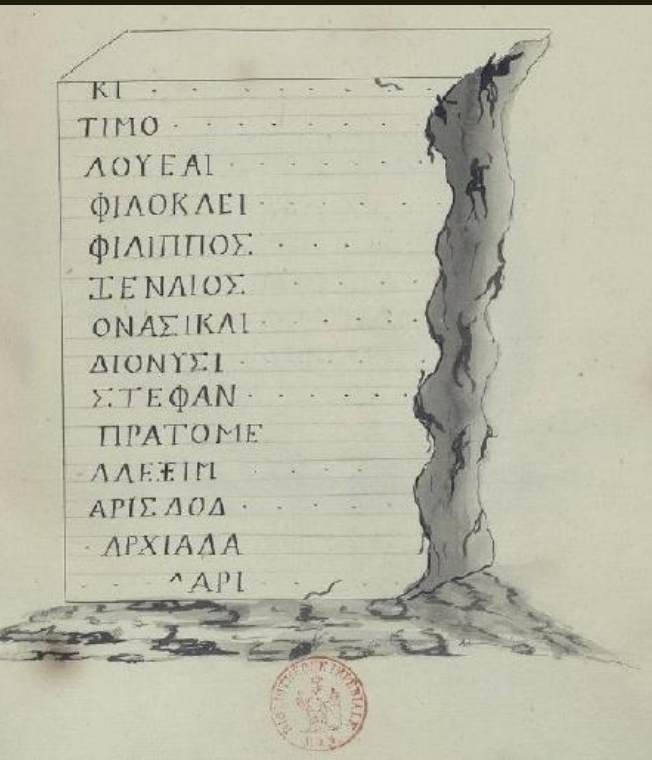 ΚΙ
ΤΙΜΟ
ΛΟΥΕΑΙ
ΦΙΛΟΚΛΕΙ
ΦΙΛΙΠΠΟΣ
ΞΕΝΑΙΟΣ
ΟΝΑΣΙΚΛΙ
ΔΙΟΝΥΣΙ
ΣΤΕΦΑΝ
ΠΡΑΤΟΜΕ
ΑΛΕΞΙΜ
ΑΡΙΣΛΟΔ
ΑΡΧΙΑΔΑ
ΑΡΙ